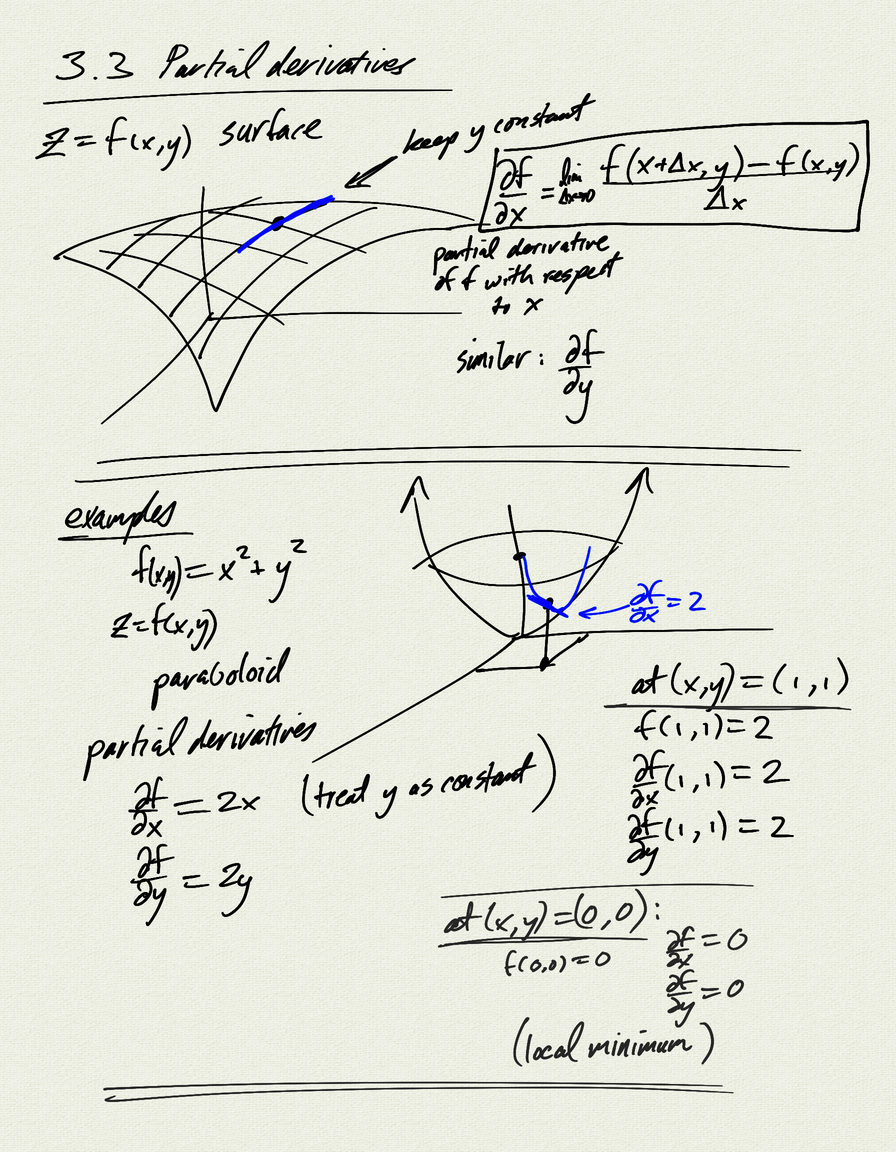 3.3 Partial derivatives
z = f(x,y) surface
keep y constant
∂f/∂x = lim Δx→0 (f(x+Δx, y) − f(x,y))/Δx
partial derivative
of f with respect
to x
similar: ∂f/∂y
examples
f(x,y) = x² + y²
z = f(x,y)
paraboloid
∂f/∂x = 2
partial derivatives
∂f/∂x = 2x (treat y as constant)
∂f/∂y = 2y
at (x,y) = (1,1)
f(1,1) = 2
∂f/∂x (1,1) = 2
∂f/∂y (1,1) = 2
at (x,y) = (0,0):
f(0,0) = 0
∂f/∂x = 0
∂f/∂y = 0
(local minimum)